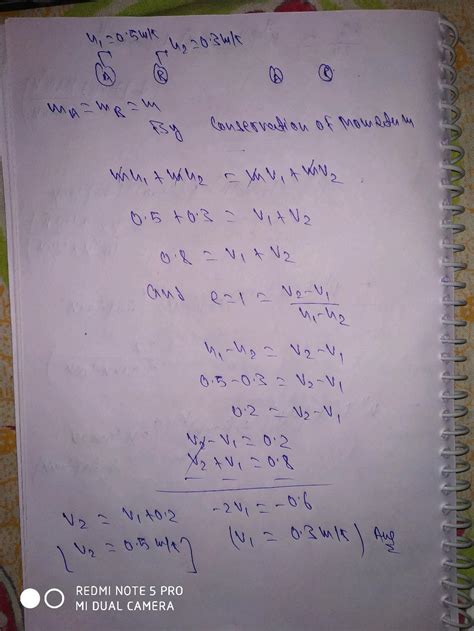 u₁=0.5m/s u₂=0.3m/s
A B A B
m_A = m_B = m
By Conservation of Momentum
mu₁ + mu₂ = mv₁ + mv₂
0.5 + 0.3 = v₁ + v₂
0.8 = v₁ + v₂
and e=1 = (v₂-v₁)/(u₁-u₂)
u₁-u₂ = v₂-v₁
0.5-0.3 = v₂-v₁
0.2 = v₂-v₁
v₂-v₁ = 0.2
v₂+v₁ = 0.8
- - -
v₂ = v₁+0.2 -2v₁ = -0.6
[v₂ = 0.5m/s] (v₁ = 0.3m/s) Ans
REDMI NOTE 5 PRO
MI DUAL CAMERA